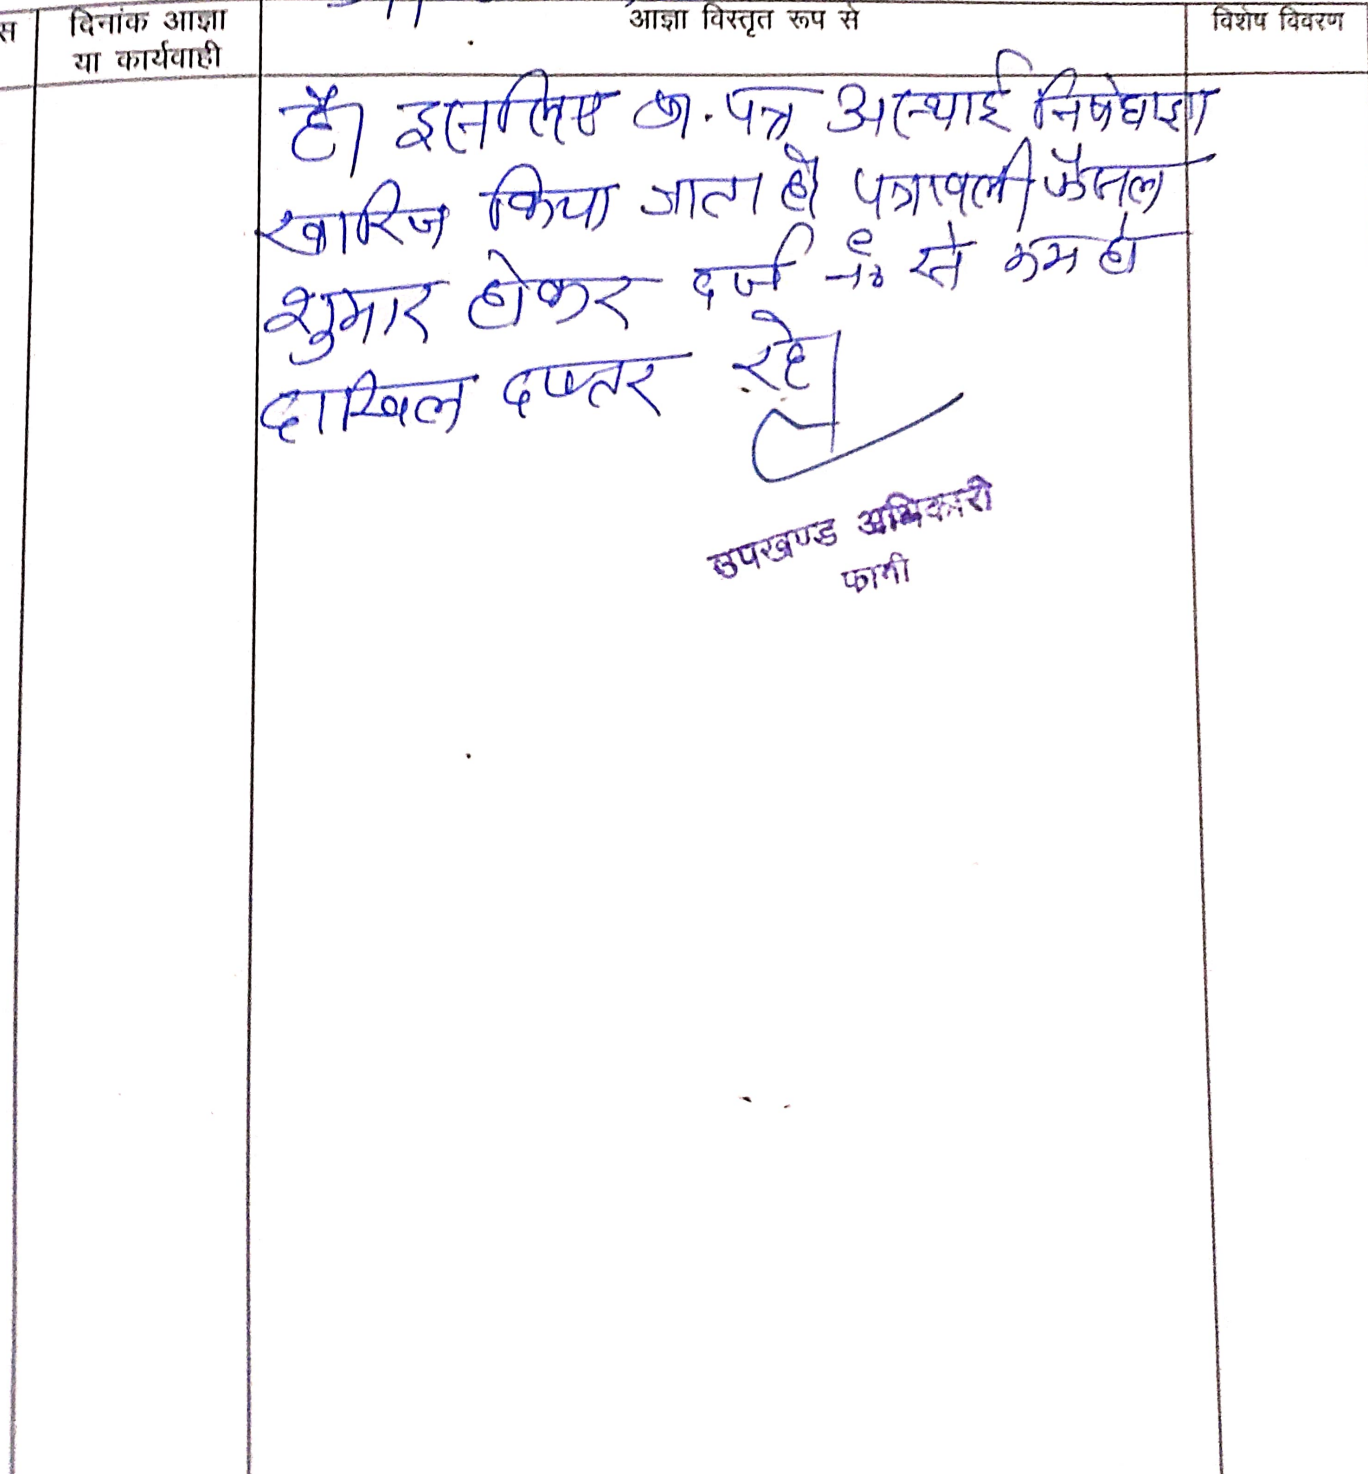 स
दिनांक आज्ञा
या कार्यवाही
आज्ञा विस्तृत रूप से
विशेष विवरण
है। इसलिए प्रा. पत्र अस्थाई निषेधाज्ञा
खारिज किया जाता है पत्रावली फैसल
शुमार होकर दर्ज नं० से कम हो
दाखिल दफ्तर रहे।
उपखण्ड अधिकारी
फागी